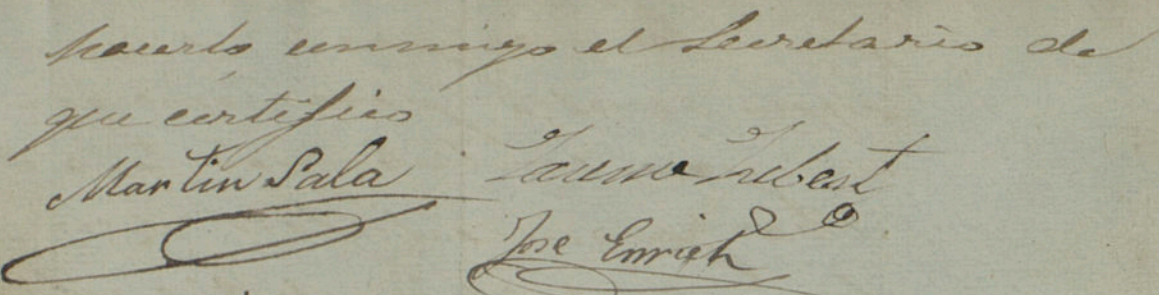 hacerlo conmigo el Secretario de
que certifico
Martin Sala Jaume
Jose Enrich